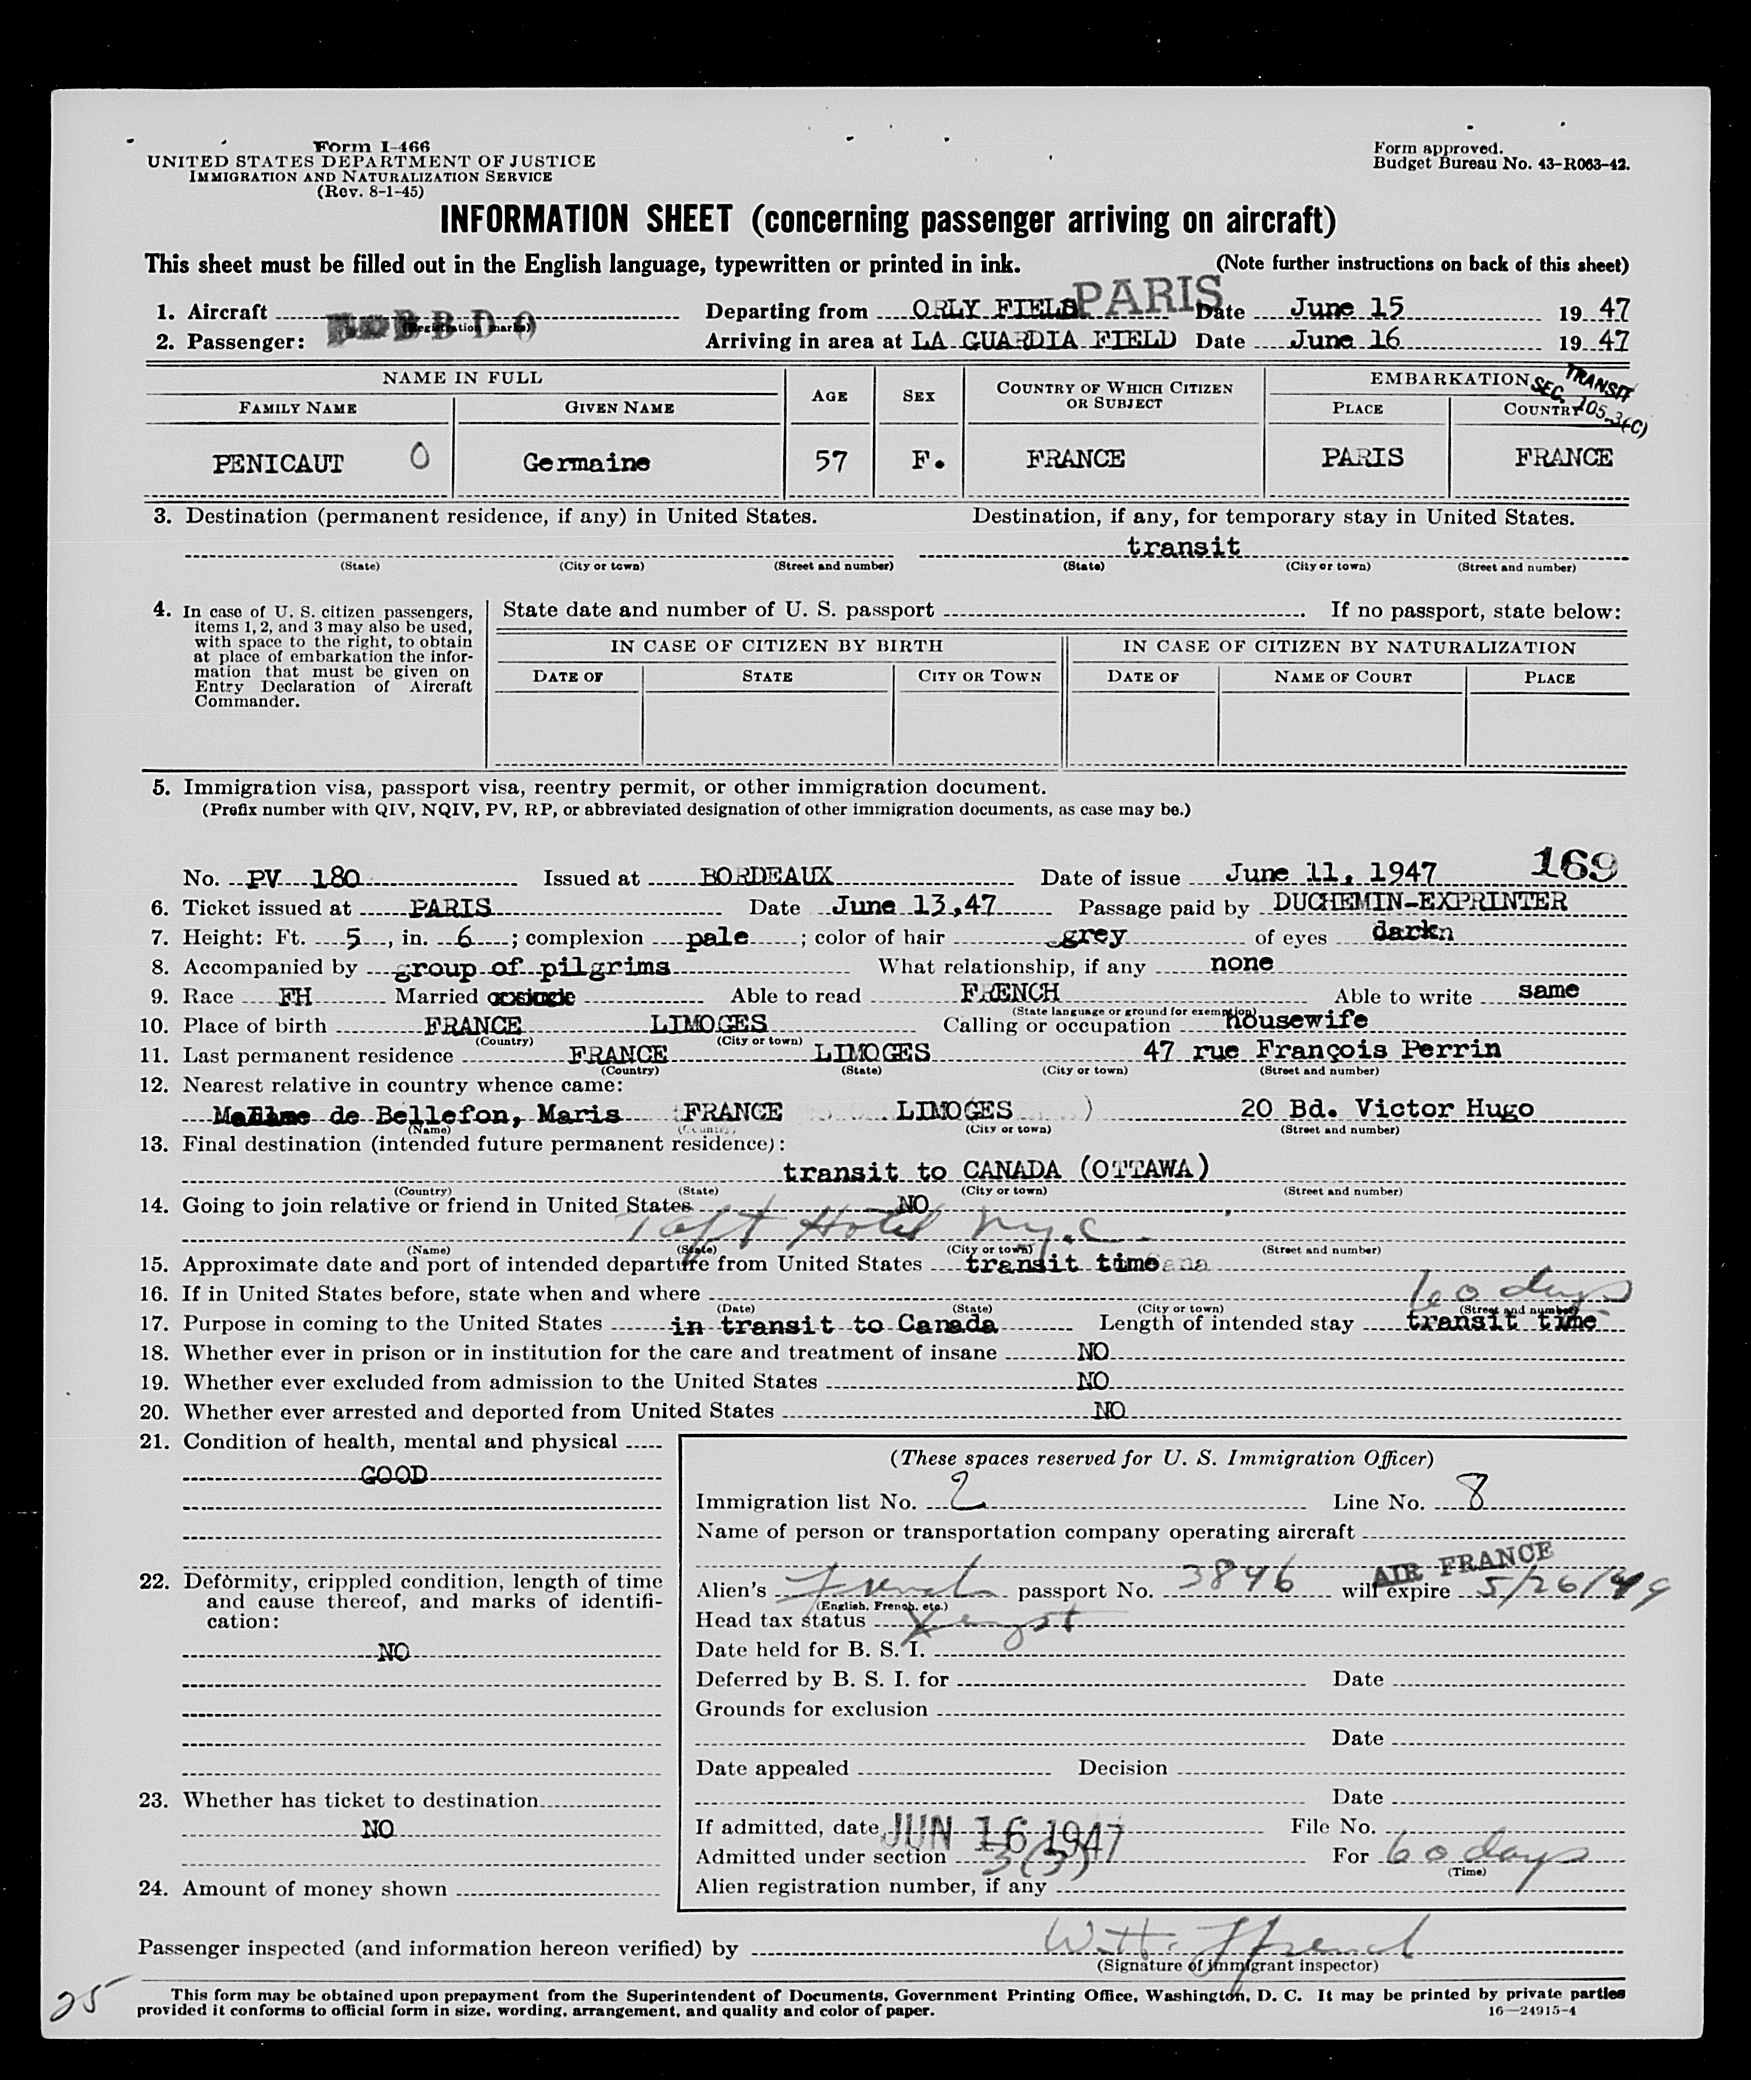 Form I-466
UNITED STATES DEPARTMENT OF JUSTICE
IMMIGRATION AND NATURALIZATION SERVICE
(Rev. 8-1-45)
Form approved.
Budget Bureau No. 43-R063-42.
INFORMATION SHEET (concerning passenger arriving on aircraft)
This sheet must be filled out in the English language, typewritten or printed in ink. (Note further instructions on back of this sheet)
1. Aircraft (Registration marks) Departing from ORLY FIELD PARIS Date June 15 1947
2. Passenger: Arriving in area at LA GUARDIA FIELD Date June 16 1947
NAME IN FULL AGE SEX COUNTRY OF WHICH CITIZEN OR SUBJECT EMBARKATION
TRANSIT
SEC. 105-3(C)
FAMILY NAME GIVEN NAME PLACE COUNTRY
PENICAUT 0 Germaine 57 F. FRANCE PARIS FRANCE
3. Destination (permanent residence, if any) in United States. Destination, if any, for temporary stay in United States.
transit
(State) (City or town) (Street and number) (State) (City or town) (Street and number)
4. In case of U. S. citizen passengers, items 1, 2, and 3 may also be used, with space to the right, to obtain at place of embarkation the information that must be given on Entry Declaration of Aircraft Commander.
State date and number of U. S. passport . If no passport, state below:
IN CASE OF CITIZEN BY BIRTH IN CASE OF CITIZEN BY NATURALIZATION
DATE OF STATE CITY OR TOWN DATE OF NAME OF COURT PLACE
5. Immigration visa, passport visa, reentry permit, or other immigration document.
(Prefix number with QIV, NQIV, PV, RP, or abbreviated designation of other immigration documents, as case may be.)
169
No. PV 180 Issued at BORDEAUX Date of issue June 11, 1947
6. Ticket issued at PARIS Date June 13,47 Passage paid by DUCHEMIN-EXPRINTER
7. Height: Ft. 5, in. 6; complexion pale; color of hair grey of eyes darkn
8. Accompanied by group of pilgrims What relationship, if any none
9. Race FH Married Able to read FRENCH Able to write same
(State language or ground for exemption)
10. Place of birth FRANCE LIMOGES Calling or occupation housewife
(Country) (City or town)
11. Last permanent residence FRANCE LIMOGES 47 rue François Perrin
(Country) (State) (City or town) (Street and number)
12. Nearest relative in country whence came:
de Bellefon, Maris FRANCE LIMOGES ) 20 Bd. Victor Hugo
(Name) (Country) (City or town) (Street and number)
13. Final destination (intended future permanent residence):
transit to CANADA (OTTAWA)
(Country) (State) (City or town) (Street and number)
14. Going to join relative or friend in United States NO
Taft Hotel N.Y.C.
(Name) (State) (City or town) (Street and number)
15. Approximate date and port of intended departure from United States transit time
16. If in United States before, state when and where
60 days
(Date) (State) (City or town) (Street and number)
17. Purpose in coming to the United States in transit to Canada Length of intended stay transit time
18. Whether ever in prison or in institution for the care and treatment of insane NO
19. Whether ever excluded from admission to the United States NO
20. Whether ever arrested and deported from United States NO
21. Condition of health, mental and physical
GOOD
22. Deformity, crippled condition, length of time and cause thereof, and marks of identification:
NO
23. Whether has ticket to destination
NO
24. Amount of money shown
(These spaces reserved for U. S. Immigration Officer)
Immigration list No. 2 Line No. 8
Name of person or transportation company operating aircraft
AIR FRANCE
Alien's French passport No. 3846 will expire 5/26/49
(English, French, etc.)
Head tax status
Date held for B. S. I.
Deferred by B. S. I. for Date
Grounds for exclusion
Date
Date appealed Decision
Date
If admitted, date JUN 16 1947 File No.
Admitted under section 3(3) For 60 days
(Time)
Alien registration number, if any
Passenger inspected (and information hereon verified) by
(Signature of immigrant inspector)
25
This form may be obtained upon prepayment from the Superintendent of Documents, Government Printing Office, Washington, D. C. It may be printed by private parties
provided it conforms to official form in size, wording, arrangement, and quality and color of paper. 16—24915-4